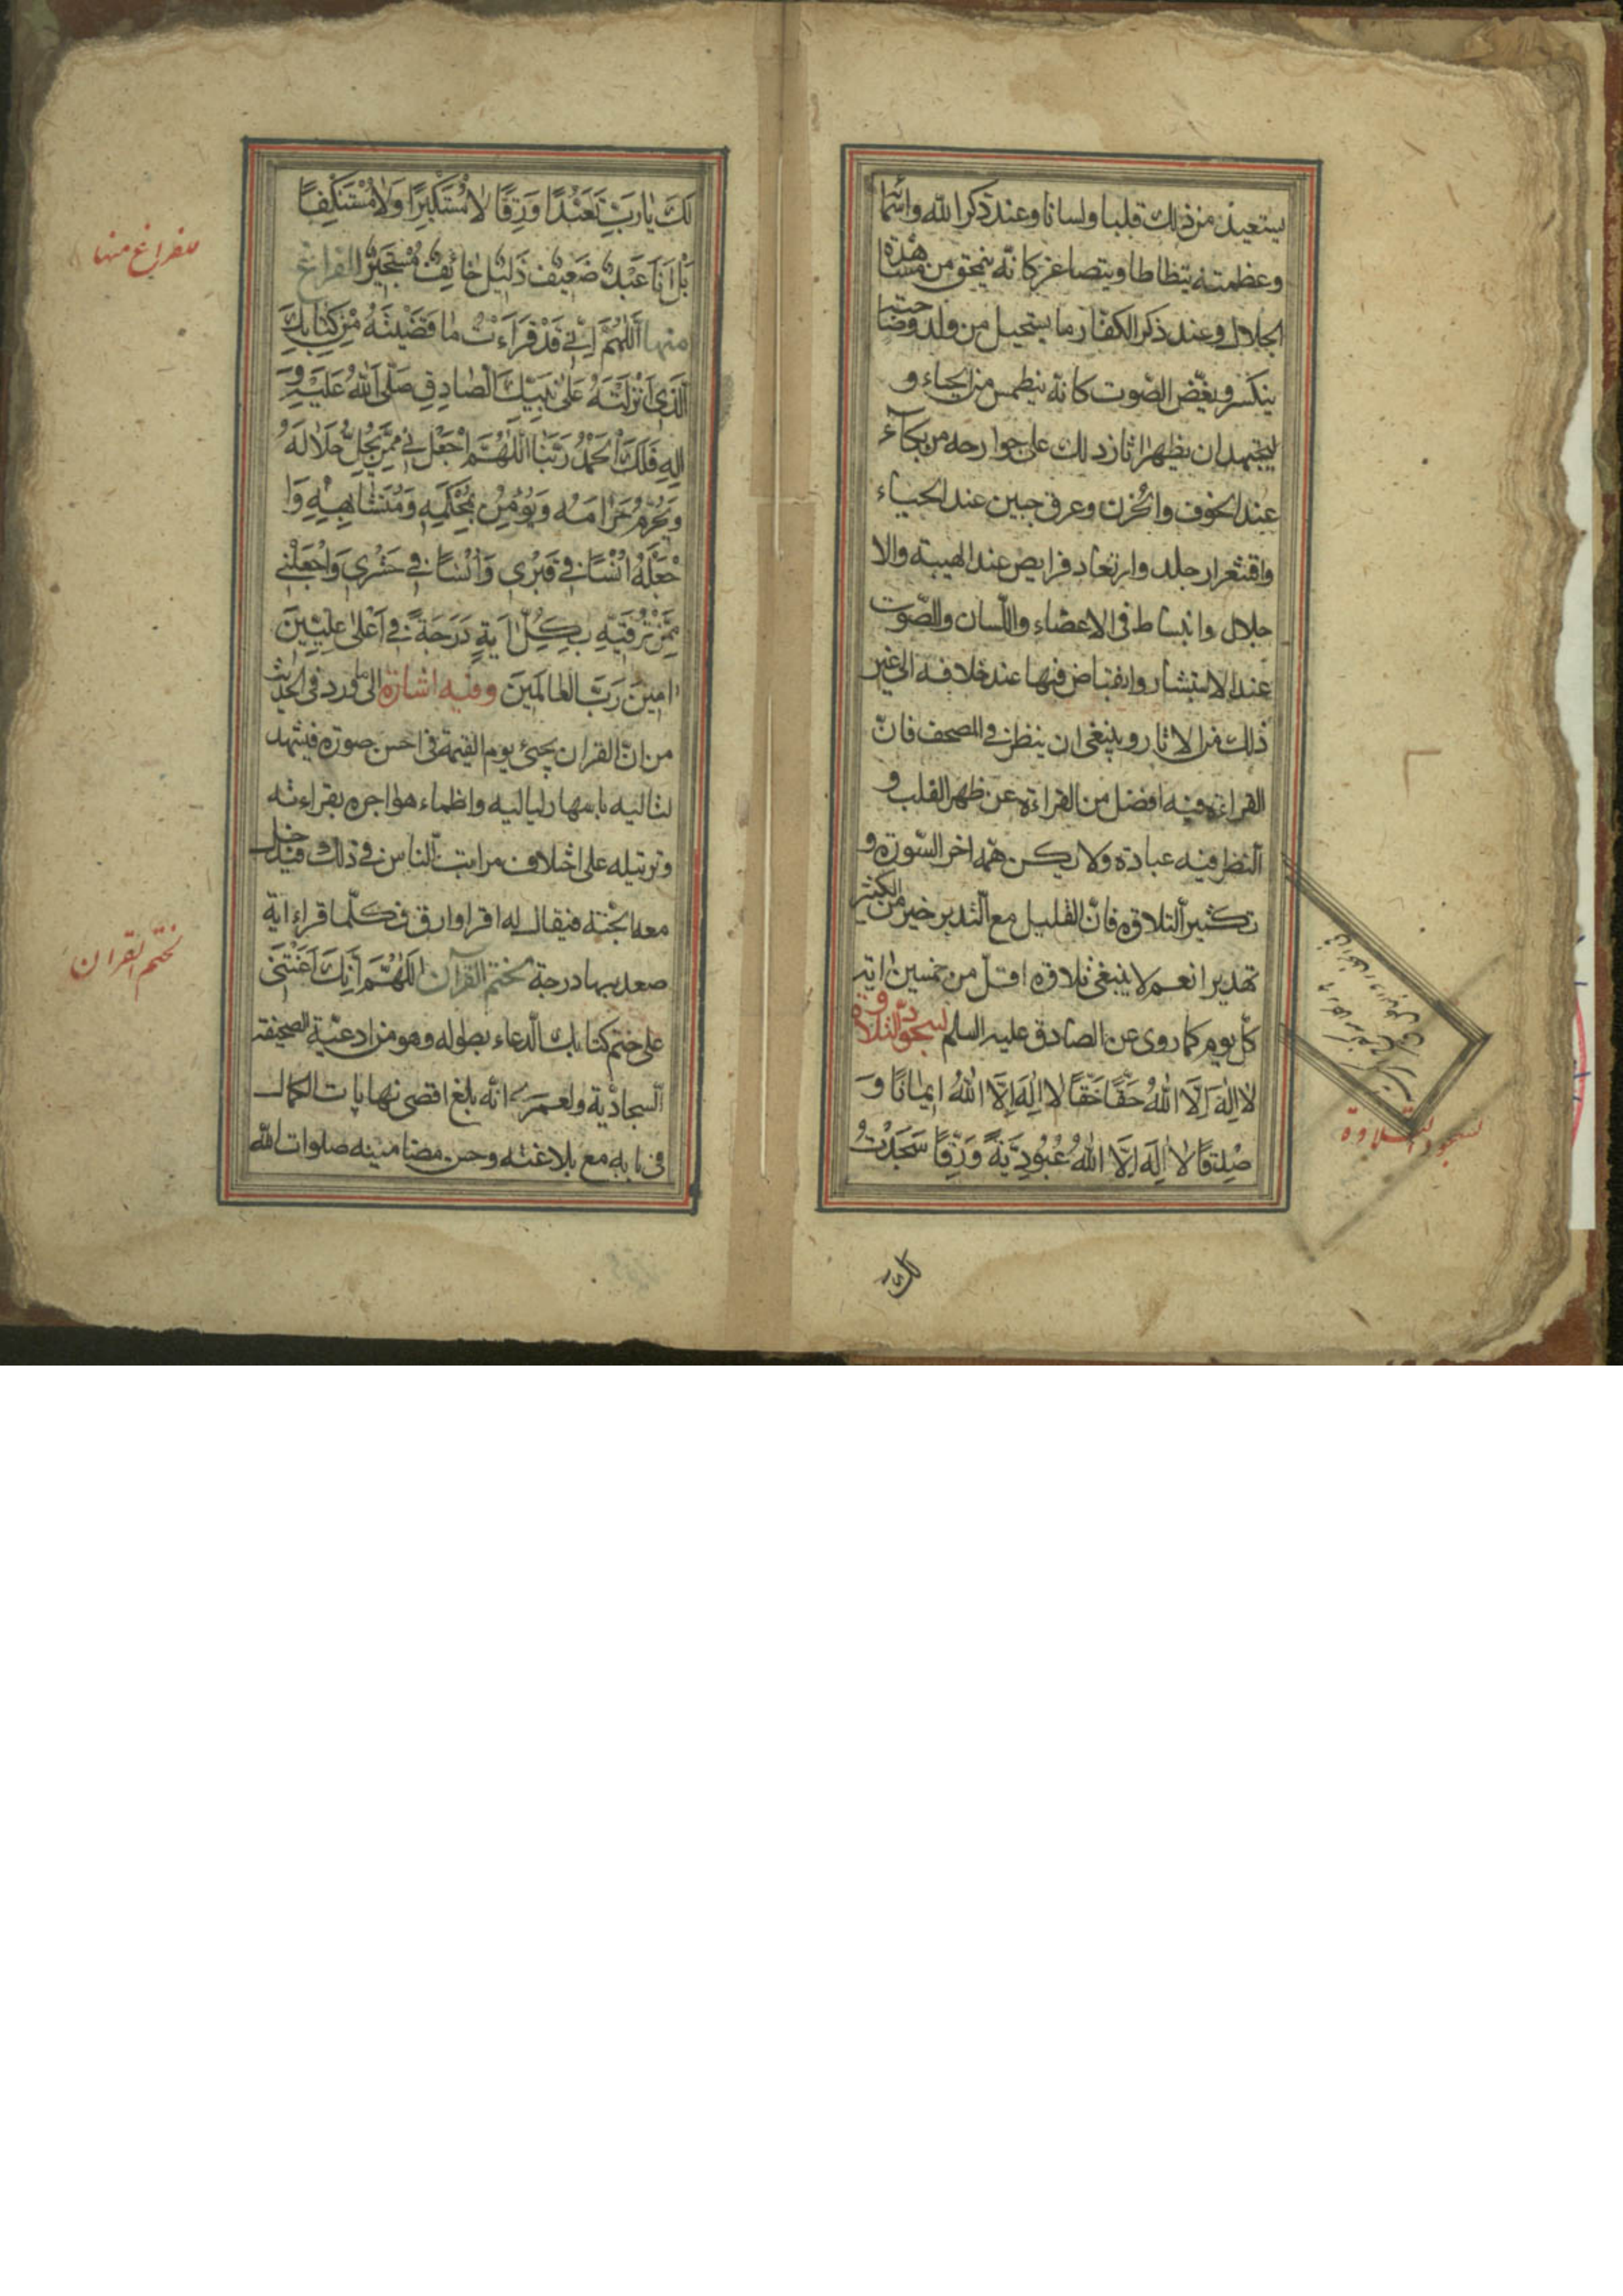 يستعيذ من ذلك قلبا ولسانا وعند ذكر الله واسمائه
وعظمته يتظاطا ويتصاغر كانه ينمحق من مشاهدة
الجلال وعند ذكر الكفار ما يستحيل من ولد وصاحبة
ينكسر ويغض الصوت كانه ينطمس من الحياء و
ليجتهد ان يظهر اثار ذلك على جوارحه من بكآء
عند الخوف والحزن وعرق جبين عند الحياء
واقشعرار جلد وارتعاد فرايص عند الهيبة والا
جلال وانبساط فى الاعضاء واللسان والصوت
عند الاستبشار وانقباض فيها عند خلافه الى غير
ذلك من الاثار وينبغى ان ينظر فى المصحف فانّ
القراءة فيه افضل من القراءة عن ظهر القلب و
النظر فيه عبادة ولا يكن همه اخر السّورة و
تكثير التلاوة فانّ القليل مع التدبر خير من الكثير
تهديرا نعم لا ينبغى تلاوة اقلّ من خمسين اية
كلّ يوم كما روى عن الصادق عليه السلم لسجود التلاوة
لا اِلٰهَ اِلَّا اللّٰهُ حَقًّا حَقًّا لا اِلٰهَ اِلَّا اللّٰهُ ايمانًا وَ
صْدِقًا لا اِلٰهَ اِلَّا اللّٰهُ عُبُودِيَّةً وَرِقًّا سَجَدْتُ
لسجود التلاوة
لك
لَكَ يٰا رَبِّ تَعَبُّدًا وَرِقًّا لٰا مُسْتَكْبِرًا وَلٰا مُسْتَنْكِفًا
بَلْ اَنَا عَبْدٌ ضَعيفٌ ذَليلٌ خٰائِفٌ مُسْتَجيرٌ الفراغ
منها اَللّٰهُمَّ اِنّي قَدْ قَرَاْتُ مٰا قَضَيْتَهُ مِنْ كِتٰابِكَ
الَّذي اَنْزَلْتَهُ عَلىٰ نَبِيِّكَ الصّٰادِقِ صَلَّى اللّٰهُ عَلَيْهِ وَ
اٰلِهِ فَلَكَ الْحَمْدُ رَبَّنٰا اَللّٰهُمَّ اجْعَلْني مِمَّنْ يُحِلُّ حَلٰالَهُ
وَيُحَرِّمُ حَرٰامَهُ وَيُؤْمِنُ بِمُحْكَمِهِ وَمُتَشٰابِهِهِ وَا
جْعَلْهُ اُنْسًا في قَبْري وَاُنْسًا في حَشْري وَاجْعَلْني
مِمَّنْ تُرَقّيهِ بِكُلِّ اٰيَةٍ دَرَجَةً في اَعْلىٰ عِلِّيّينَ
اٰمينَ رَبَّ الْعٰالَمينَ وفيه اشارة الى ما ورد فى الحديث
من انّ القران يجئ يوم القيمة فى احسن صورة فيشهد
لتاليه باسهار لياليه واظماء هواجره بقراءته
وترتيله على اختلاف مراتب الناس فى ذلك فيدخل
معه الجنة فيقال له اقرا وارق فكلّما قراء اية
صعد بها درجة لختم القرآن اَللّٰهُمَّ اِنَّكَ اَعَنْتَني
على ختم كتابك الدعاء بطوله وهو من ادعية الصحيفة
السجادية ولعمرى انّه بالغ اقصى نهايات الكمال
فى بابه مع بلاغته وحسن مضامينه صلوات الله
للفراغ منها
لختم القران